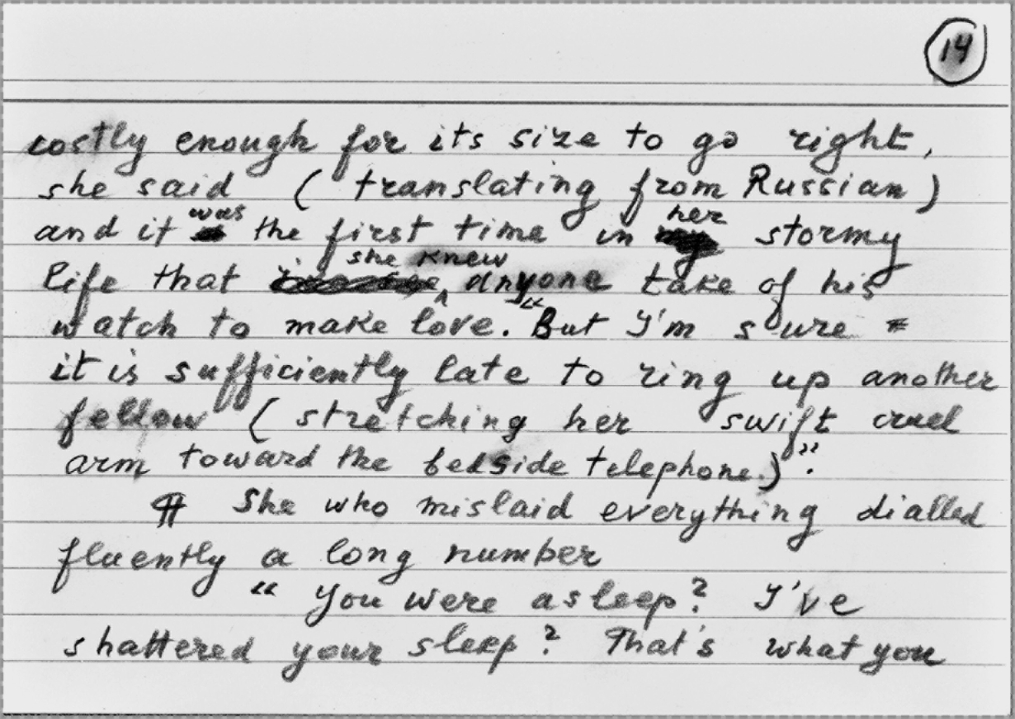 14
costly enough for its size to go right,
she said ( translating from Russian )
and it was the first time in her stormy
life that she knew anyone take of his
watch to make love. "But I'm sure
it is sufficiently late to ring up another
fellow ( stretching her swift cruel
arm toward the bedside telephone.)".
¶ She who mislaid everything dialled
fluently a long number
"You were asleep? I've
shattered your sleep? That's what you